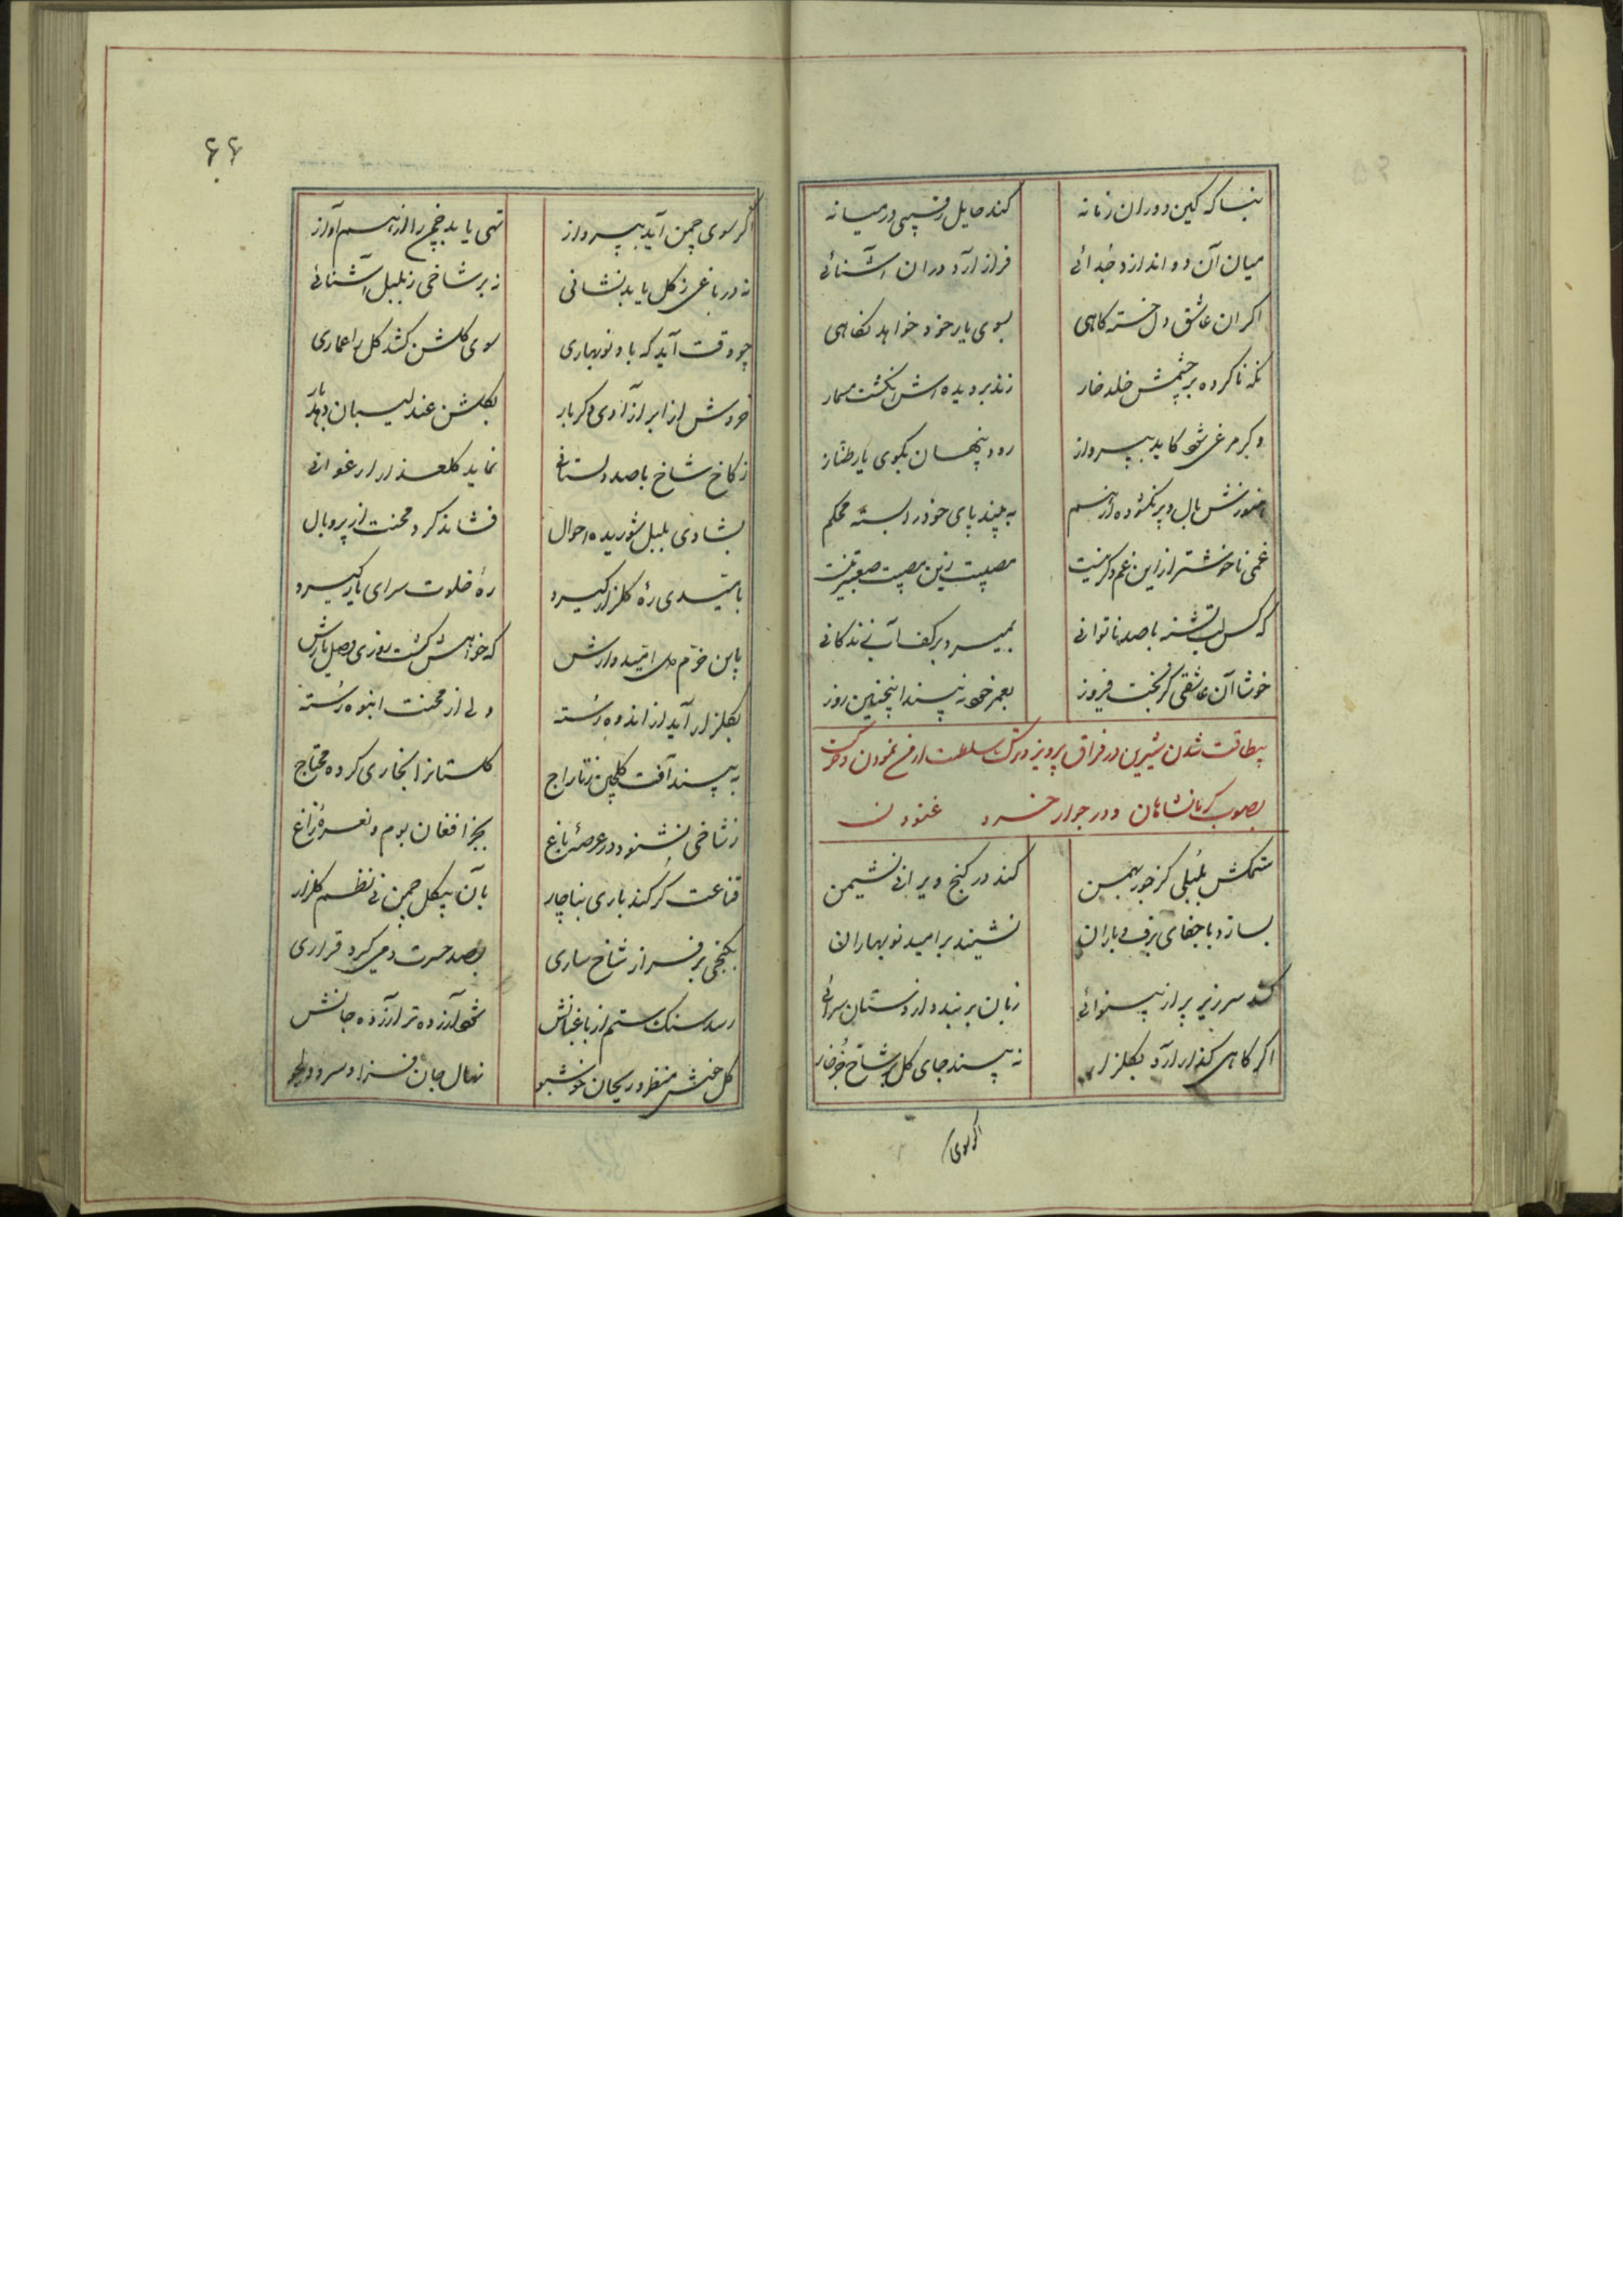 بنا که کین دوران زمانه
کند حایل رقیبی در میانه
میان آن دو اندازد جدائی
فراز آرد دران آشنائی
اکر ان عاشق دل خسته کاهی
بسوی یار خود خواهد نکاهی
نکه ناکرده بر چشمش خلد خار
زند بر دیده اش انکشت مسمار
وکر مرغی شود کاید بپرواز
رود پنهان بکوی یار طناز
هنوزش بال و پر نکشوده از هم
به پیچد پای خود در رشته محکم
غمی ناخوشتر از این غم دکر نیست
مصیبت زین مصیبت صعبتر نیست
که کس لب تشنه با صد ناتوانی
بمیرد بر کف آب زندکانی
خوشا آن عاشقی کز بخت فیروز
بعمر خود نه بیند اینچنین روز
بیطاقت شدن شیرین در فراق پرویز و ترک سلطنت ارمن نمودن و حرکت
بصوب کرمانشاهان و در جوار خسرو غنودن
ستمکش بلبلی کز جور بهمن
کند در کنج ویرانی نشیمن
بسازد با جفای برف و باران
نشیند بر امید نوبهاران
کشد سر زیر پر از بینوائی
زبان بر بندد از دستان سرائی
اکر کاهی کذار آرد بکلزار
نه بیند جای کل بر شاخ جز خار
اکر سوی
۶۶
اکر سوی چمن آید بپرواز
تهی یابد چمن را از هم آواز
نه در باغی ز کل یابد نشانی
نه بر شاخی ز بلبل آشنائی
چو وقت آید که باد نوبهاری
سوی کلشن کشد کل را عماری
خروش از ابر آزاری دکر بار
بکلشن عندلیبان را دهد بار
ز کاخ شاخ با صد دلستانی
نماید کلعذار ارغوانی
بشادی بلبل شوریده احوال
فشاند کرد محنت از پر و بال
بامیدی ره کلزار کیرد
ره خلوت سرای یار کیرد
باین خرم دل امیدوارش
که خواهد کشت روزی وصل یارش
بکلزار آید از اندوه رسته
ولی از محنت انبوه رسته
به بیند آفت کلچین ز تاراج
کلستانرا بخاری کرده محتاج
ز شاخی نشنود در عرصه باغ
بجز افغان بوم و نعره زاغ
قناعت کر کند باری بناچار
بآن بیکل چمن نی نظم کلزار
بکنجی بر فراز شاخ ساری
بصد حسرت دمی کیرد قراری
رسد سنک ستم از باغبانش
شود آزرده تر آزرده جانش
کل خوش منظر و ریحان خوشبو
نهال جان فزا و سرو دلجو